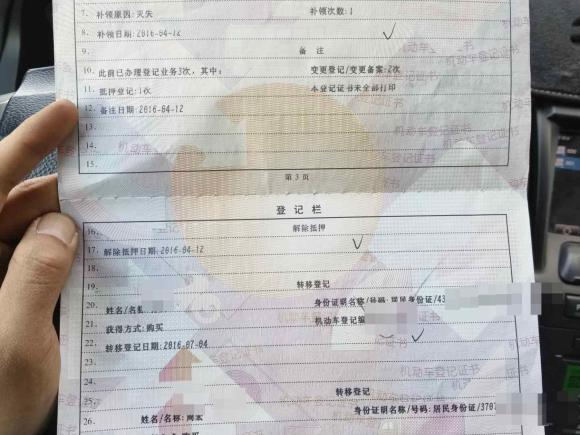 7. 补领原因:灭失 补领次数:1
8. 补领日期:2016-04-12
9. 备注
10. 此前已办理登记业务3次,其中: 变更登记/变更备案:2次
11. 抵押登记:1次 本登记证书未全部打印
12. 备注日期:2016-04-12
13.
14.
15.
第3页
登记栏
16. 解除抵押
17. 解除抵押日期:2016-04-12
18.
19. 转移登记
20. 姓名/名 身份证明名称/号码:居民身份证/43
21. 获得方式:购买 机动车登记编
22. 转移登记日期:2016-07-04
23.
24.
25. 转移登记
26. 姓名/名称: 身份证明名称/号码:居民身份证/3707
机动车登记证书
机动车登记证书
机动车登记证书